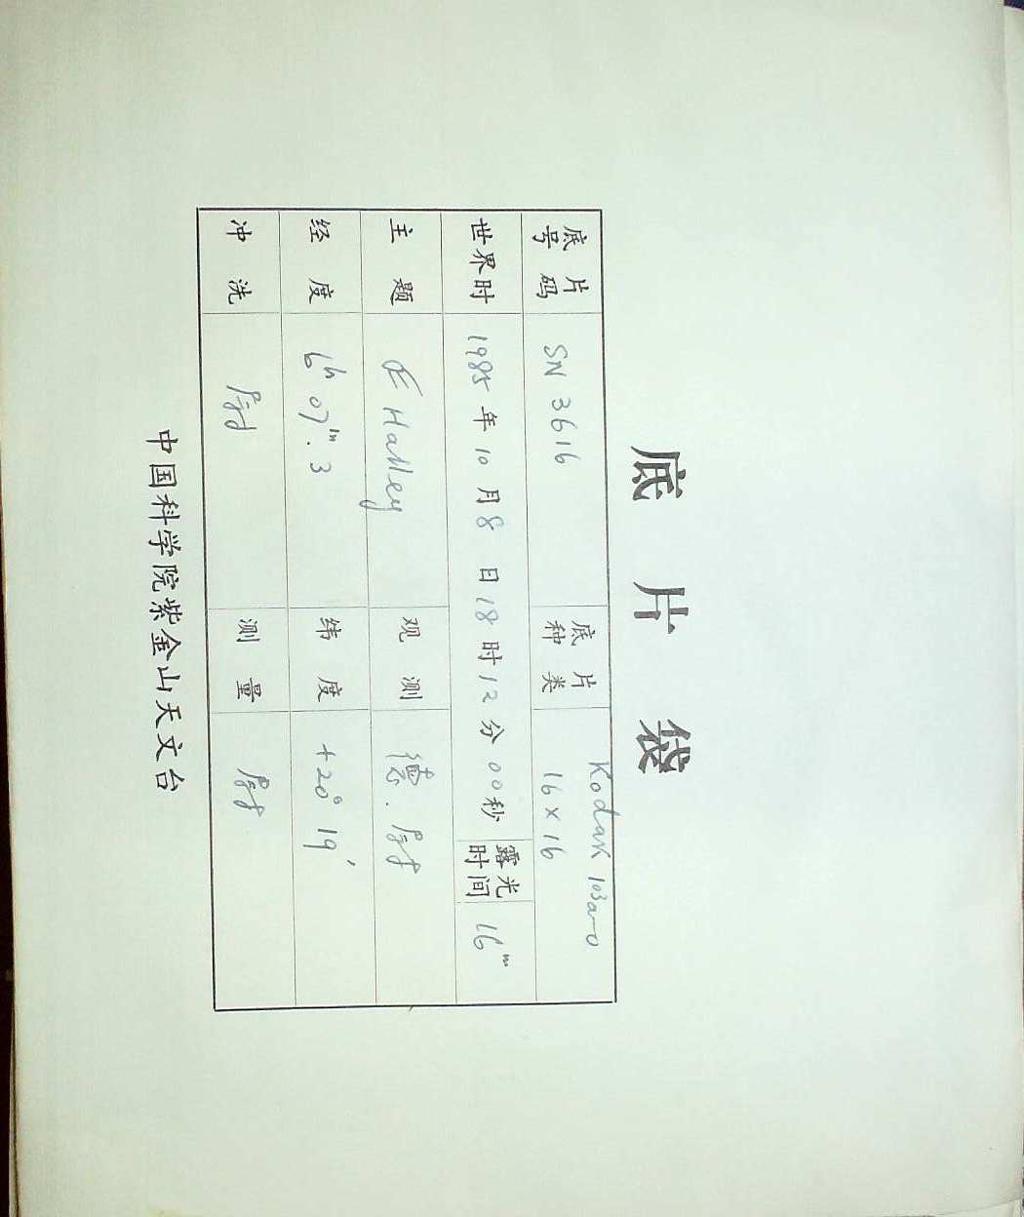 底片袋
底片号码 SN 3616 底片种类 Kodak 103a-o 16×16
世界时 1985年10月8日18时12分00秒 露光时间 16m
主题 Halley 观测 德.
经度 6h 07m.3 纬度 +20° 19′
冲洗 测量
中国科学院紫金山天文台